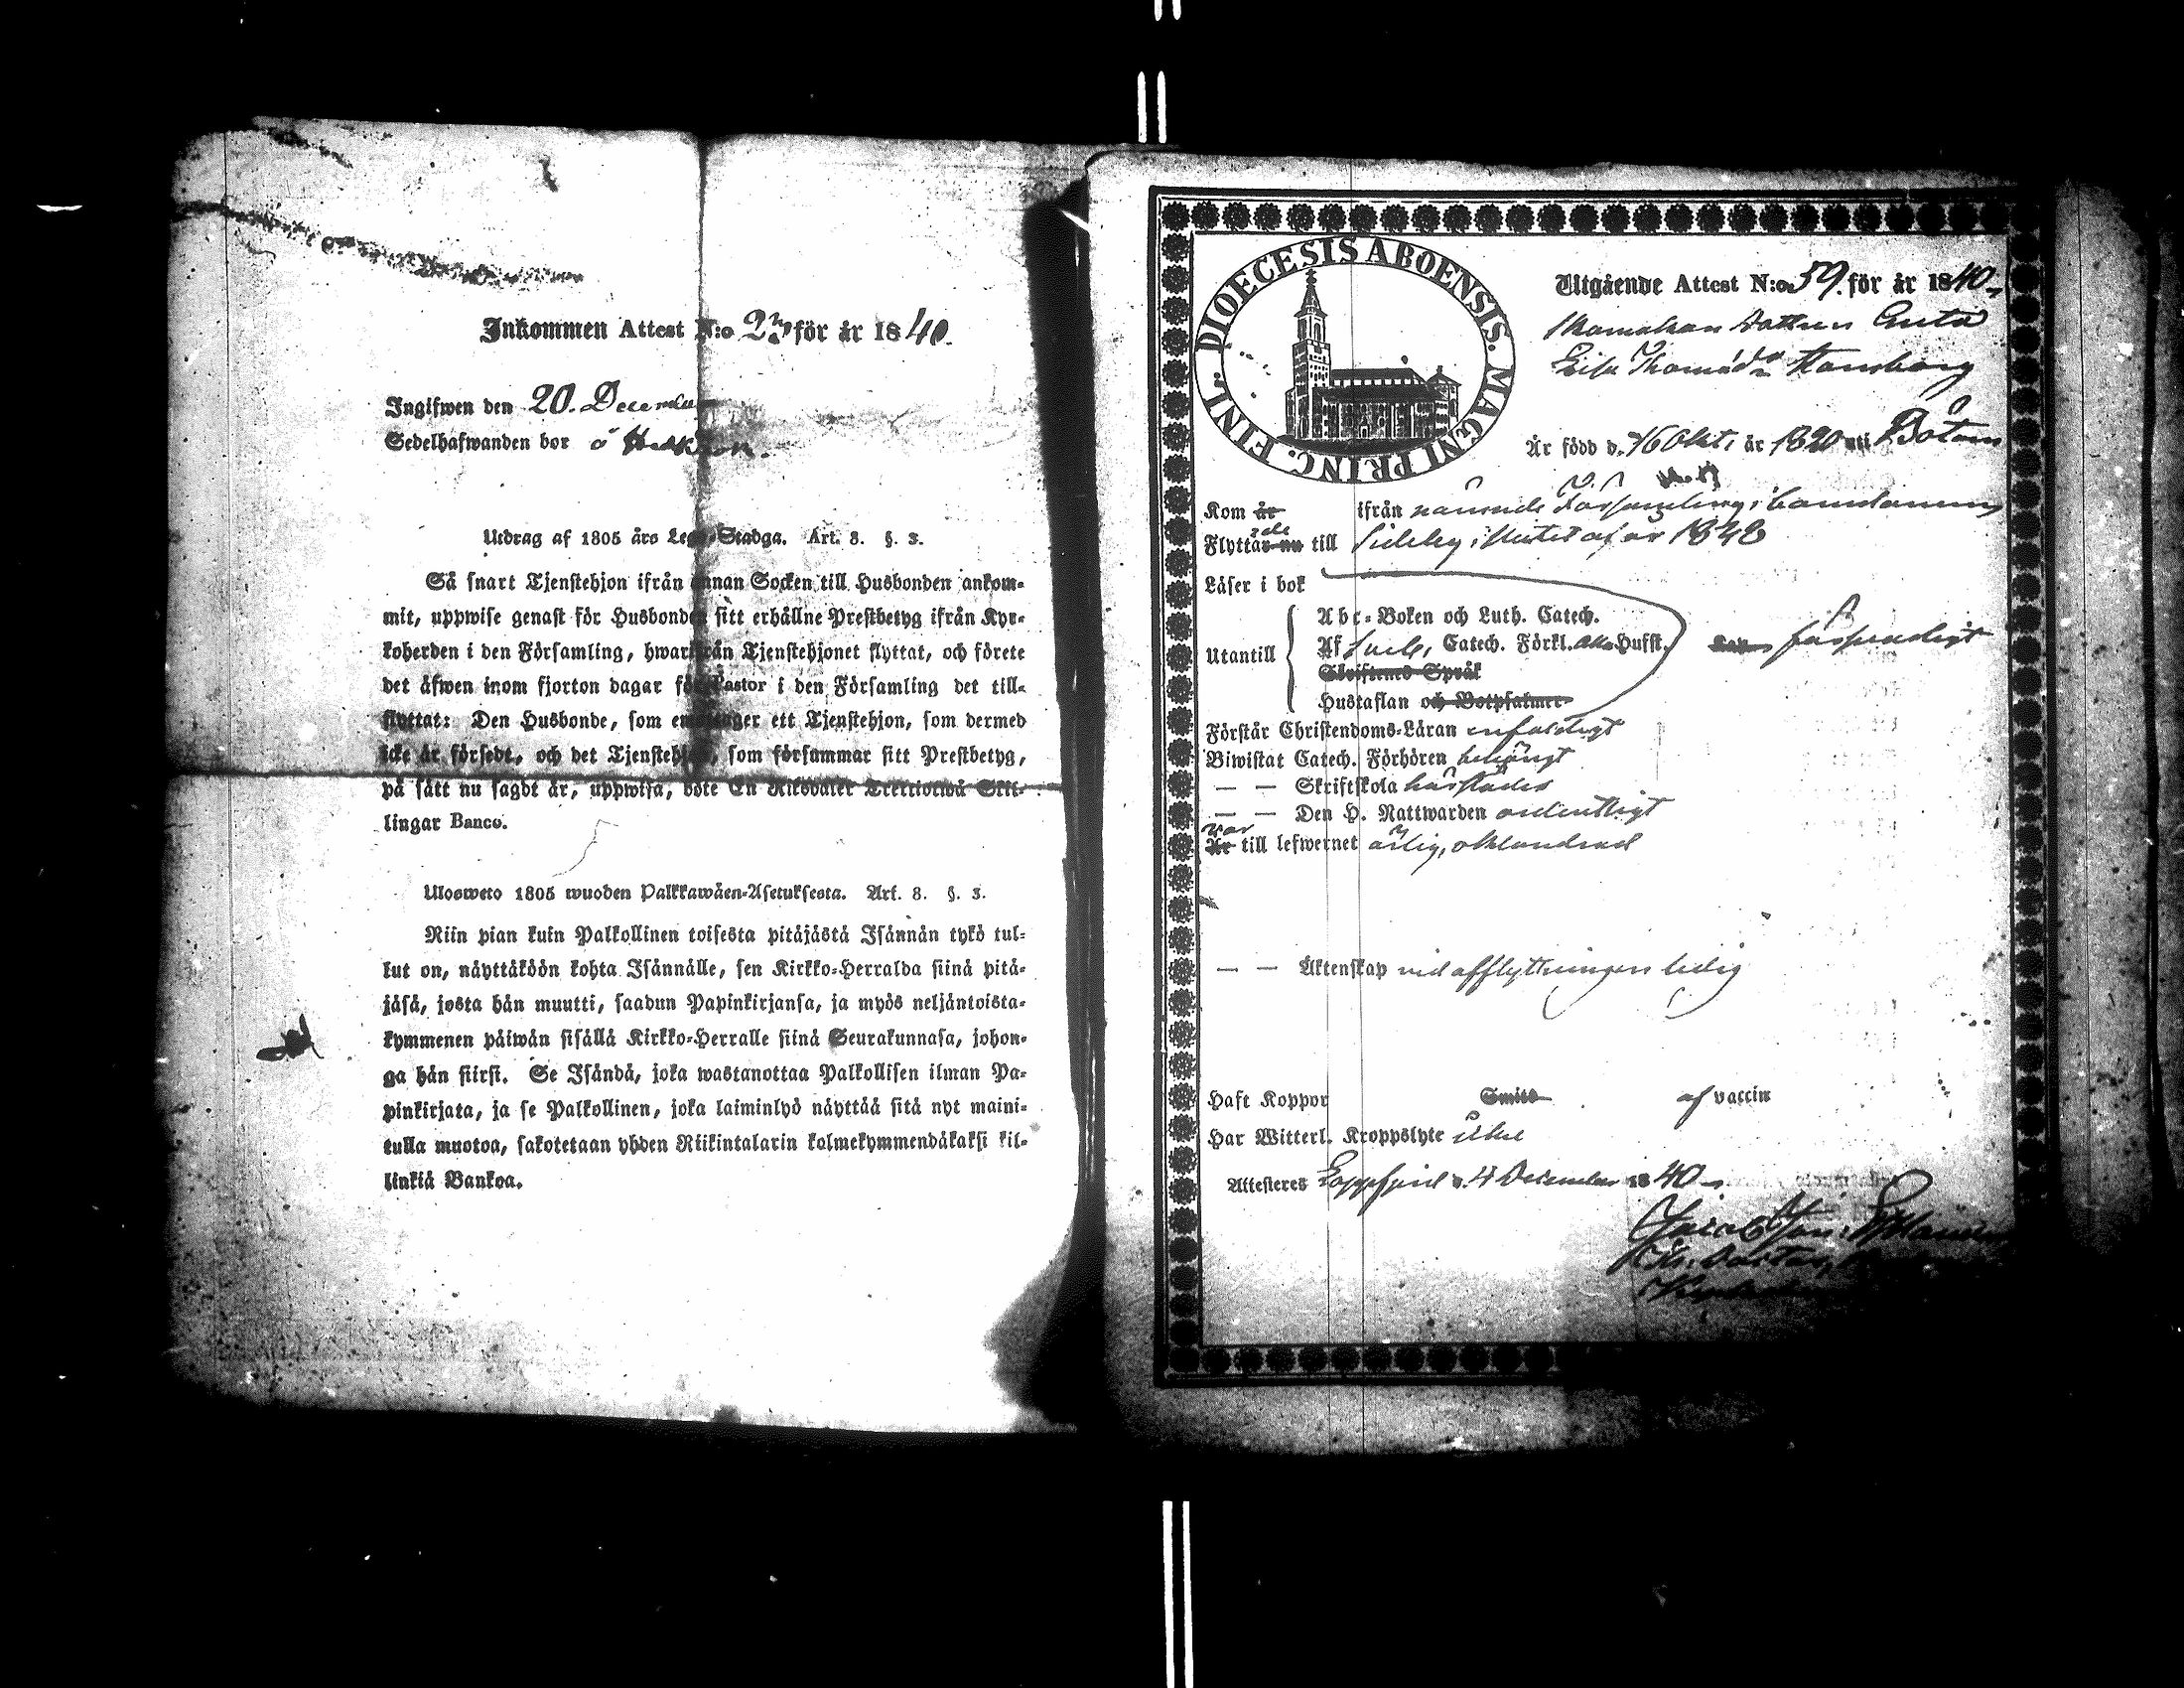 Inkommen Attest N:o 23 för år 1840.
Ingifwen den 20. December
Sedelhafwanden bor å
Utdrag af 1805 års Lego-Stadga. Art. 8. §. 3.
Så snart Tjenstehjon ifrån annan Socken till Husbonden ankom-
mit, uppwise genast för Husbonden sitt erhållne Prestbetyg ifrån Kyr-
koherden i den Församling, hwarifrån Tjenstehjonet flyttat, och förete
det äfwen inom fjorton dagar för Pastor i den Församling det till-
flyttat: Den Husbonde, som emottager ett Tjenstehjon, som dermed
icke är försedt, och det Tjenstehjon, som försummar sitt Prestbetyg,
på sätt nu sagdt är, uppwisa, böte En Riksdaler Trettiotwå Skil-
lingar Banco.
Ulosweto 1805 wuoden Palkkawäen-Asetuksesta. Art. 8. §. 3.
Niin pian kuin Palkollinen toisesta pitäjästä Isännän tykö tul-
lut on, näyttäköön kohta Isännälle, sen Kirkko-Herralda siinä pitä-
jäsä, josta hän muutti, saadun Papinkirjansa, ja myös neljäntoista-
kymmenen päiwän sisällä Kirkko-Herralle siinä Seurakunnasa, johon-
ga hän siirsi. Se Isändä, joka wastanottaa Palkollisen ilman Pa-
pinkirjata, ja se Palkollinen, joka laiminlyö näyttää sitä nyt maini-
tulla muotoa, sakotetaan yhden Riikintalarin kolmekymmendäkaksi kil-
linkiä Bankoa.
DIOECESIS ABOENSIS. MAGNI PRINC. FINL.
Utgående Attest N:o 59. för år 1840.
dottren Greta
Lisa Thomasdr
Är född d. 16 Okt. år 1820 uti
Kom år ifrån församling i
Flyttar nu till af år 1838
Läser i bok
Utantill
Abc-Boken och Luth. Catech.
Af Sveb. Catech. Förkl. Hufst.
Skriftenes Språk
Hustaflan och Botpsalmer
försvarligt
Förstår Christendoms-Läran enfaldigt
Biwistat Catech. Förhören behörigt
— — Skriftskola härstädes
— — Den H. Nattwarden ordentligt
var
Är till lefwernet ärlig, oklandrad
— — Äktenskap vid afflyttningen ledig
Haft Koppor Smitt af vaccin
Har Witterl. Kroppslyte
Attesteres d. 4 December 1840